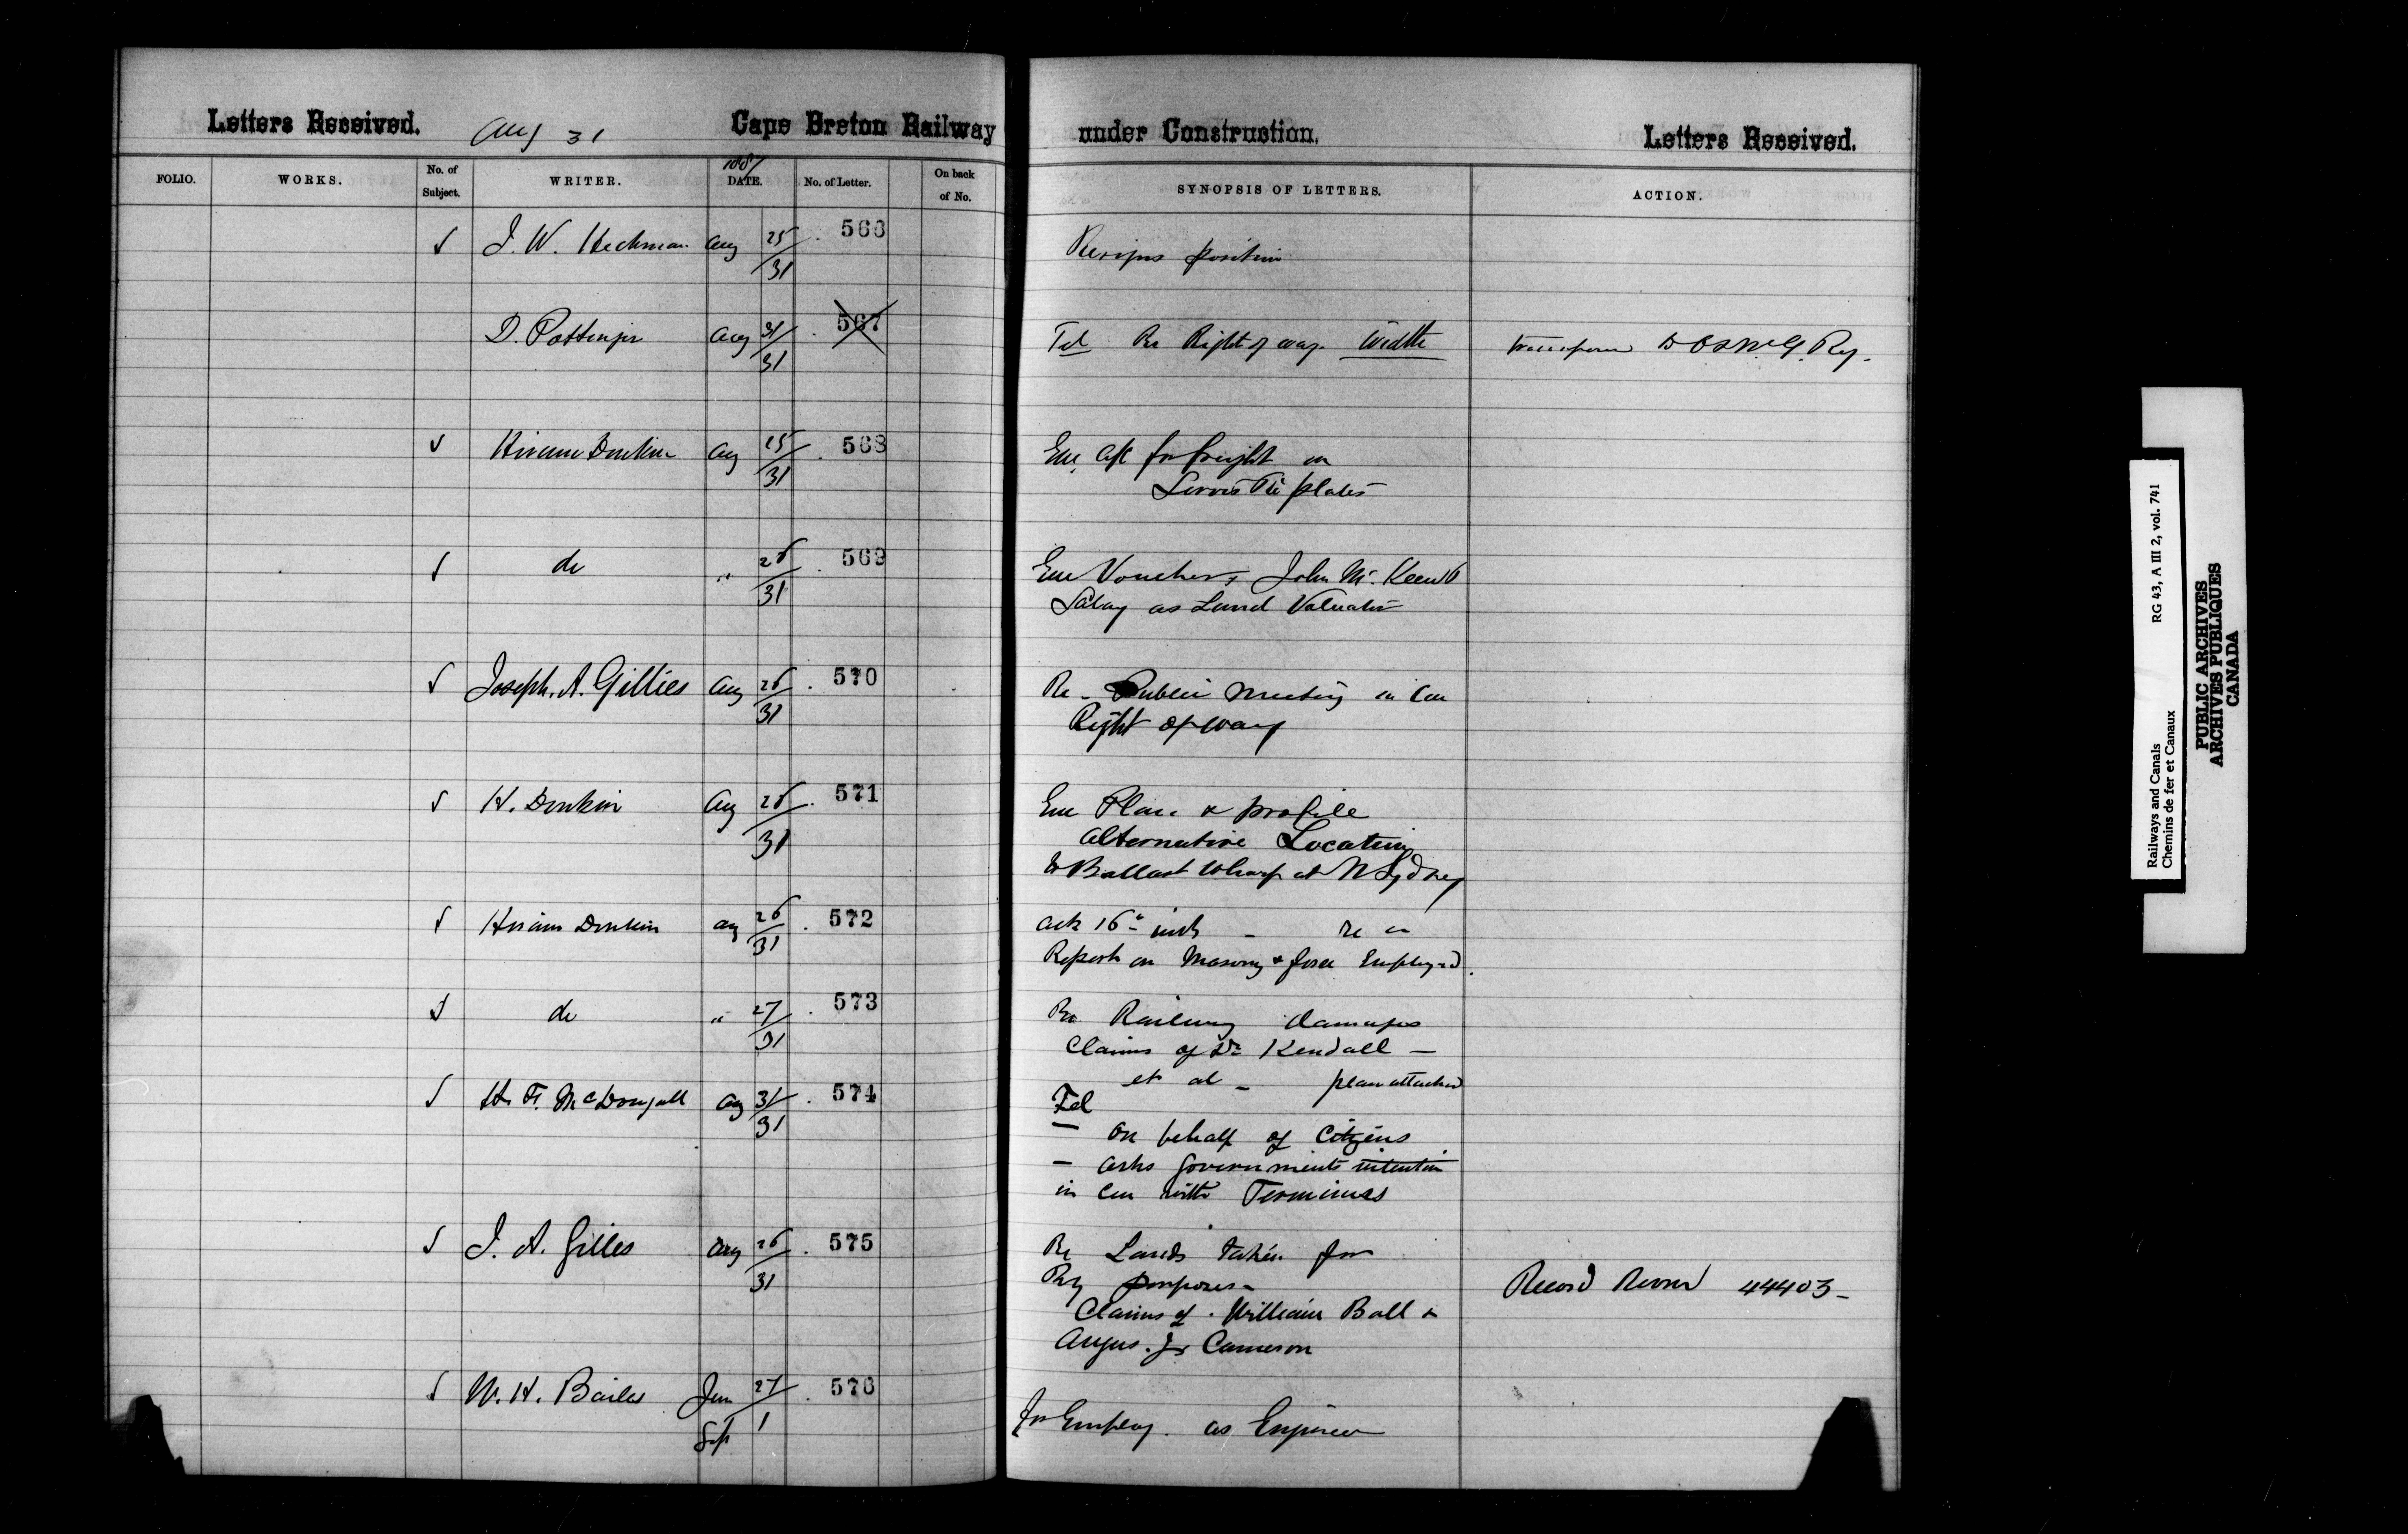 Letters Received. Aug 31 Cape Breton Railway under Construction. Letters Received.
FOLIO. WORKS. No. of Subject. WRITER. 1887 DATE. No. of Letter. On back of No. SYNOPSIS OF LETTERS. ACTION.
√ J. W. Heckman Aug 25/31 . 566 Resigns position
D. Pottinger Aug 31/31 . 567 Tel Re Right of way Width transferred to O & N. G. Ry.
√ Hiram Donkin Aug 25/31 . 568 Enc. a/c for freight on
Servis Tie plates
√ do " 26/31 . 569 Enc Vouchers John McKeen
Salary as Land Valuator
√ Joseph. A. Gillies Aug 26/31 . 570 Re - Public Meeting in Con
Right of way
√ H. Donkin Aug 26/31 . 571 Enc Plan & profile
alternative Location
to Ballast Wharf at N Sydney
√ Hiram Donkin Aug 26/31 . 572 Ack 16th inst -
Report on Masonry & force Employed.
√ do " 27/31 . 573 Re Railway damages
Claims of Dr Kendall -
et al - plan attached
√ H. F. McDougall Aug 31/31 . 574 Tel
- On behalf of Citizens
- asks Governments intention
in Con with Terminus
√ J. A. Gilles Aug 26/31 . 575 Re Lands taken for
Ry purposes -
Claims of . William Ball &
Angus. Cameron
Record Room 44403 -
√ W. H. Bailes Jun 27/ Sep 1 . 576 for Employ. as Engineer
RG 43, A III 2, vol. 741
Railways and Canals
Chemins de fer et Canaux
PUBLIC ARCHIVES
ARCHIVES PUBLIQUES
CANADA